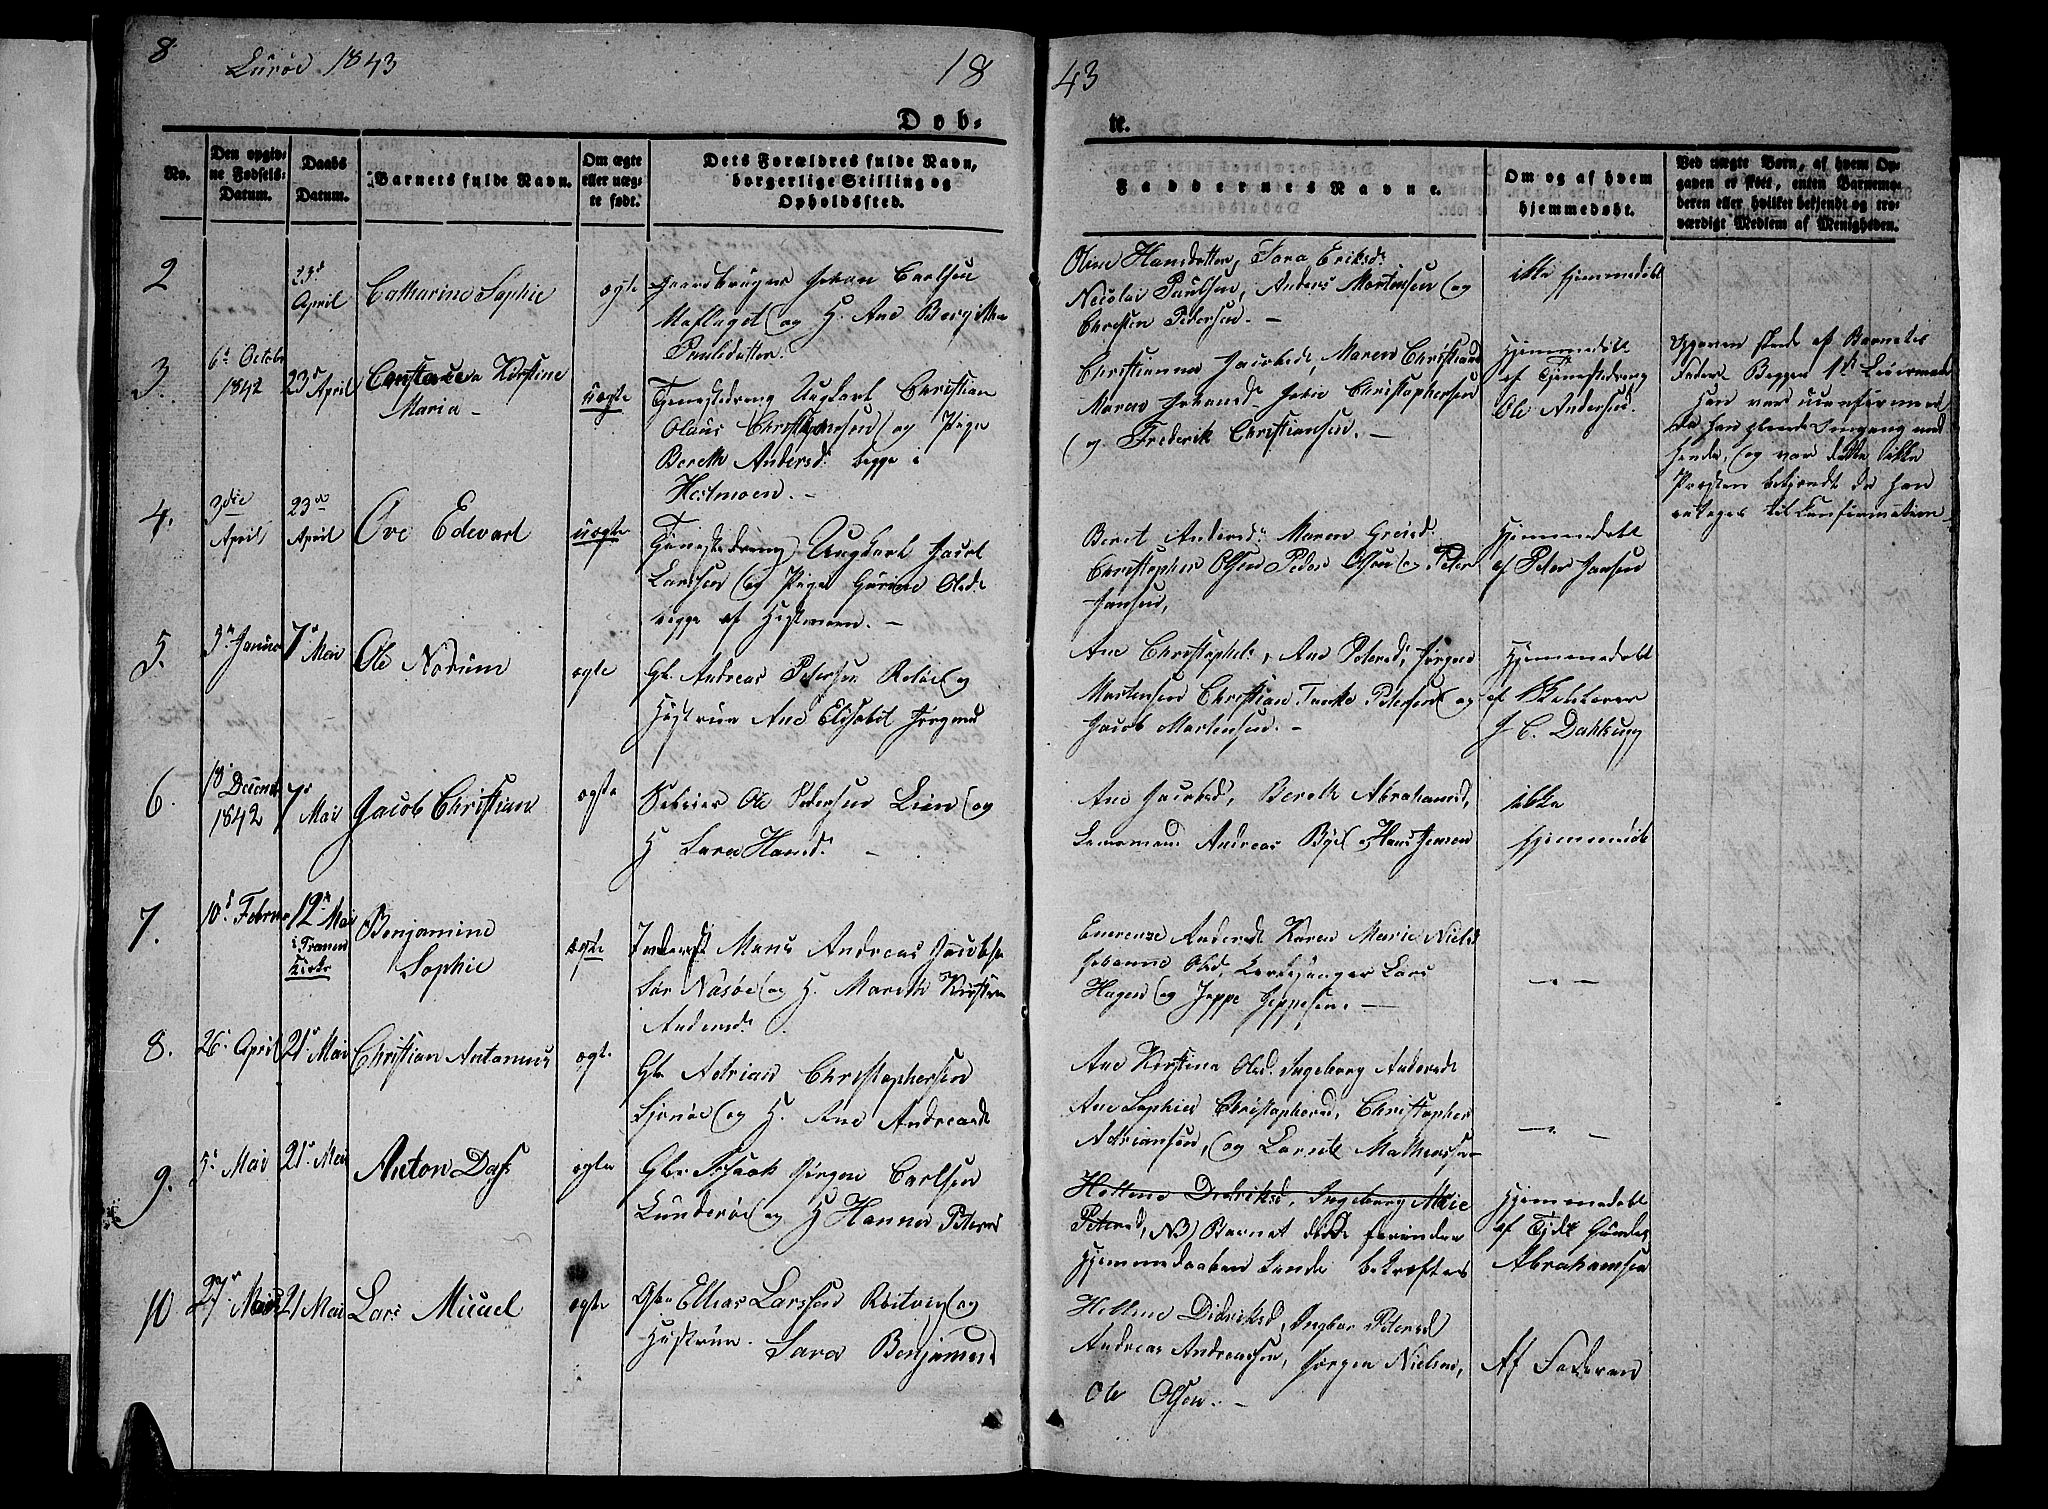 8
Lurøe 1843
18
43
Døb-
te.
No.
Den opgiv-
ne Fødsels-
Datum.
Daabs
Datum.
Barnets fulde Navn.
Om ægte
eller uæg-
te født.
Dets Forældres fulde Navn,
borgerlige Stilling og
Opholdssted.
Faddernes Navne.
Om og af hvem
hjemmedøbt.
Ved uægte Børn, af hvem Op-
gaven er skeet, enten Barnemo-
deren eller hvilket bekjendt og tro-
værdigt Medlem af Menigheden.
2
23d
April
Catharine Sophie
ægte
Gaardbruger Johan Carlsen
og H. Ane Bergitha
Paulsdatter.
Oline Hansdatter, Sara Eriksd.
Nicolai Paulsen, Anders Mortensen og
Christen Pedersen. -
ikke hjemmedøbt
3.
6t Octobr
1842
23d April
Constance Kirstine
Maria -
uægte
Tjenestedreng Ungkarl Christian
Olaus Christophersen og Pige
Bereth Andersd. begge i
Hestmoen. -
Christianna Jacobsd., Maren Christiansd
Maren Johansd. Christophersen
og Frederik Christiansen. -
Hjemmedøbt
af Tjenestedreng
Ole Andersen.
Opgaven skede af Barnets
Fader. Begges 1ste Leiermaal
Han var uconfirmeret
da han pleiede Omgang med
hende, og var dette ikke
Præsten bekjendt da han
antoges til Confirmation -
4.
3die
April
23de
April
Ove Edevart
uægte
Tjenestedreng Ungkarl Jacob
Larsen og Pige Gurine Olsd.
begge af Hestmoen. -
Beret Andersd. Maren Greisd.
Christopher Olsen Peder Olsen og Peter
Jansen,
Hjemmedøbt
af Peter Jansen
5.
3n Januar
7n Mai
Ole Nordum
ægte
Gbr. Andreas Petersen Reløe og
Hustrue Ane Elisabet Jørgensd
Ane Christophd., Ane Petersd, Jørgen
Mortensen Christian Tanke Petersen og
Jacob Mortensen. -
Hjemmedøbt
af Klokkeren
J. C. Dahl
6.
18. Decemb
1842
7n
Mai
Jacob Christian
ægte
Ole Pedersen Lien og
H Sara Hansd. -
Ane Jacobsd, Bereth Abrahamsd,
Lensmand Andreas Bye og Hans Jensen
ikke
hjemmedøbt
7.
10d Februar
12n Mai
i Trænen
Kirke
Benjamine
Sophie
ægte
Inderst Mons Andreas Jacobsen
Sør Næsøe og H. Mareth Kirstine
Andersd.
Emerense Andersd Karen Marie Nielsd
Johanne Olsd, Kirkesanger Lars
Hagen og Jeppe Jeppesen. -
- " -
8.
26. April
21n Mai
Christian Antonius
ægte
Gbr Adrian Christophersen
Sjonøe og H. Ane Andreasd
Ane Kirstine Olsd. Ingeborg Andersd
Ane Sophie Christophersd, Christopher
Adriansen, og Mathiassen
- " -
9.
5t Mai
21n Mai
Anton Dass
ægte
Gbr. Isaak Jørgen Carlsen
Lunderøe og H Hanna Petersd
Hellene Didriksd, Ingeborg Marie
Petersd, NB) Barnet døde forinden
Hjemmedaaben kunde bekræftes
Hjemmedøbt
af
Abrahamsen
10
27n
21 Mai
Lars Micael
ægte
Gbr Ellias Larssen Røitvig og
Hustrue. Sara Benjamins.
Hellene Didriksd, Petersd
Andreas Andreassen, Jørgen Nielsen,
Ole Olsen. -
Af Faderen